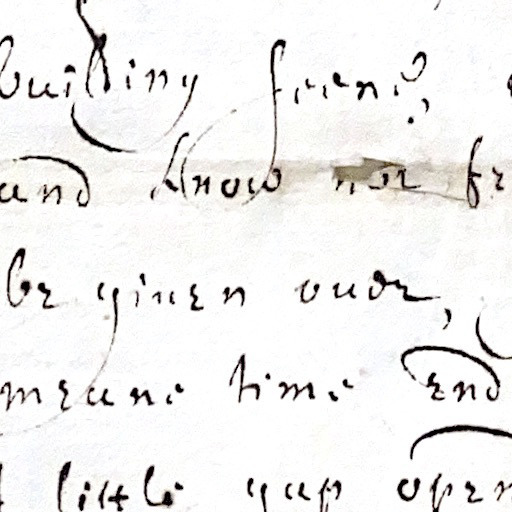 building seene,
and know not fr
be giuen ouer,
meane time end
little gap open